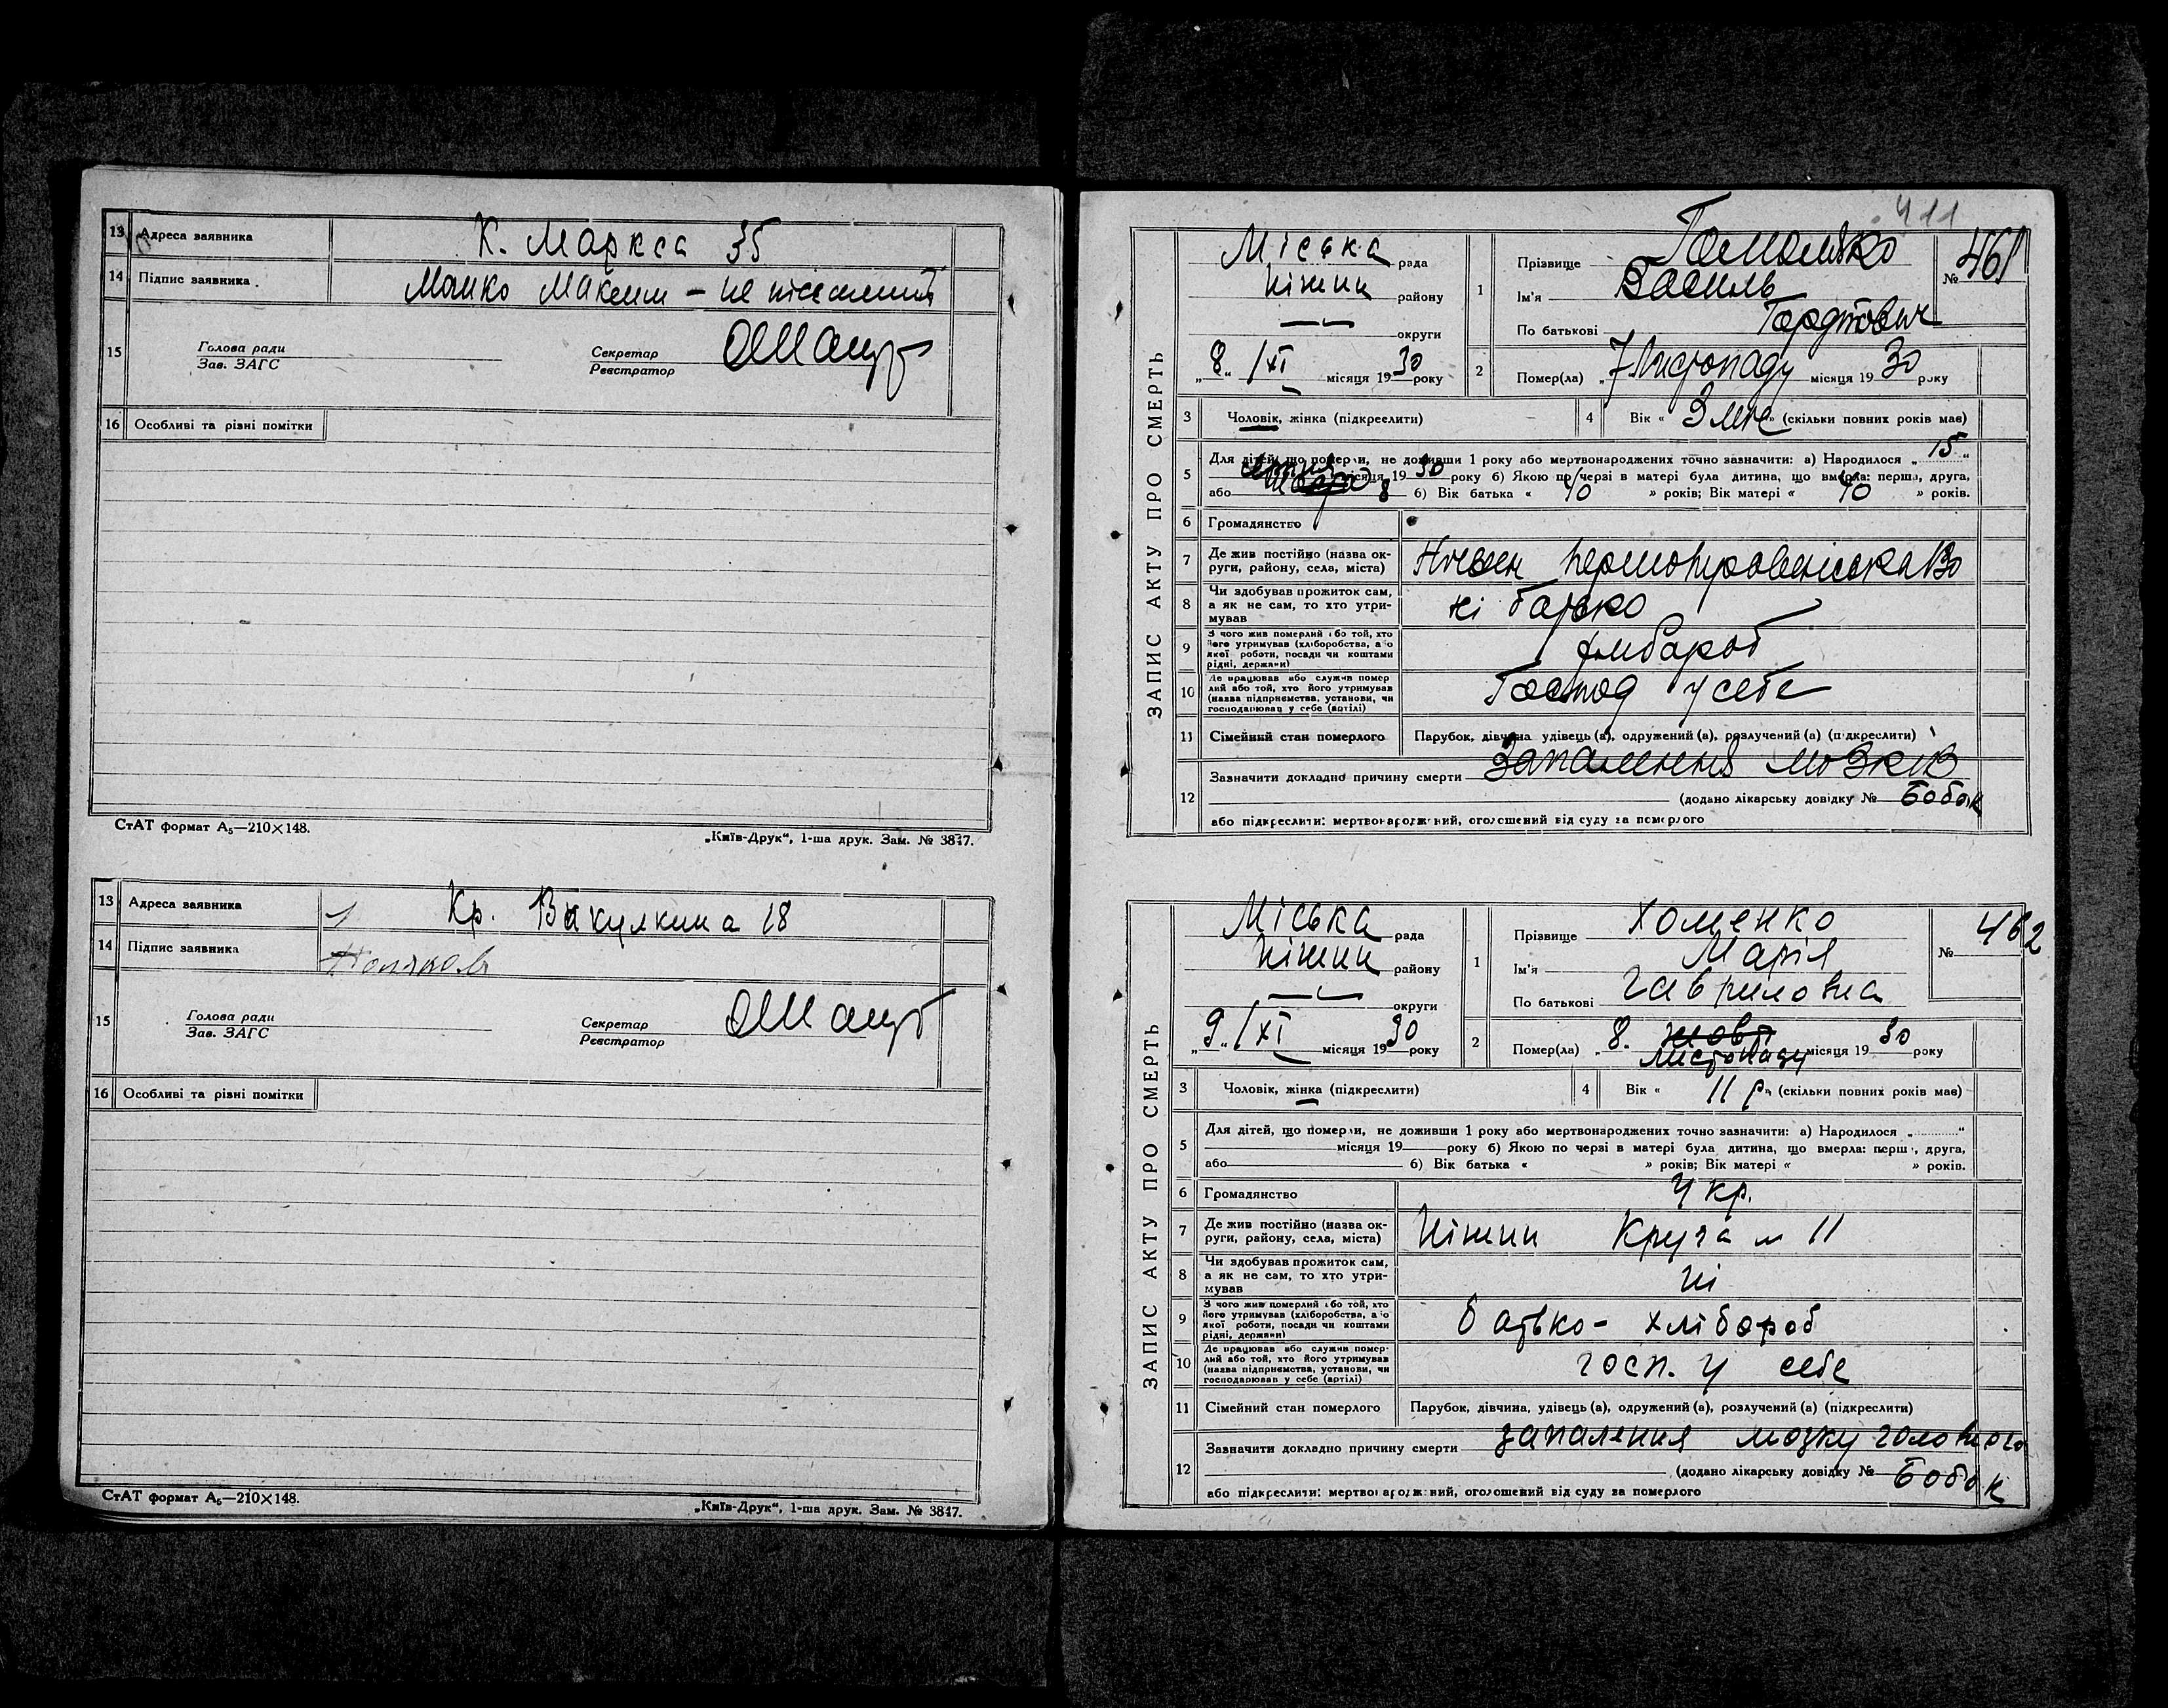 13 Адреса заявника К. Маркса 35
14 Підпис заявника. Малко Максим – не
15 Голова ради
Зав. ЗАГС
Секретар
Реєстратор
16 Особливі та різні помітки
СтАТ формат А₅—210×148.
„Київ-Друк“, 1-ша друк. Зам. № 3847.
13 Адреса заявника Кр. Вакулкина 28
14 Підпис заявника
15 Голова ради
Зав. ЗАГС
Секретар
Реєстратор
16 Особливі та різні помітки
СтАТ формат А₅—210×148.
„Київ-Друк“, 1-ша друк. Зам. № 3847.
411
ЗАПИС АКТУ ПРО СМЕРТЬ
Міська рада
Ніжин району
округи
„8“ /XI місяця 1930 року
1 Прізвище
Ім'я Василь
По батькові
№ 461
2 Помер(ла) „7 Листопаду місяця 1930 року
3 Чоловік, жінка (підкреслити)
4 Вік « 3 міс » (скільки повних років має)
5 Для дітей, що померли, не доживши 1 року або мертвонароджених точно зазначити: а) Народилося „15“
місяця 1930 року б) Якою по черзі в матері була дитина, що вмерла: перша, друга,
або 8 б) Вік батька « 40 » років; Вік матері « 40 » років.
6 Громадянство
7 Де жив постійно (назва ок-
руги, району, села, міста)
Ніжен
8 Чи здобував прожиток сам,
а як не сам, то хто утри-
мував
ні батько
9 З чого жив померлий або той, хто
його утримував (хліборобства, або
якої роботи, посади чи коштами
рідні, держави)
10 Де працював або служив помер-
лий або той, хто його утримував
(назва підприємства, установи, чи
господарював у себе (артілі)
Господ у себе
11 Сімейний стан померлого Парубок, дівчина, удівець (а), одружений (а), розлучений (а) (підкреслити)
12 Зазначити докладно причину смерти Запалення мозків
(додано лікарську довідку № Бобок
або підкреслити: мертвонароджений, оголошений від суду за померлого
ЗАПИС АКТУ ПРО СМЕРТЬ
Міська рада
Ніжин району
округи
„9“ /XI місяця 1930 року
1 Прізвище Хоменко
Ім'я Марія
По батькові Гавриловна
№ 462
2 Помер(ла) „8. жовт
листопаду місяця 1930 року
3 Чоловік, жінка (підкреслити)
4 Вік « 11 р. » (скільки повних років має)
5 Для дітей, що померли, не доживши 1 року або мертвонароджених точно зазначити: а) Народилося „ “
місяця 19 року б) Якою по черзі в матері була дитина, що вмерла: перша, друга,
або б) Вік батька « » років; Вік матері « » років.
6 Громадянство Укр.
7 Де жив постійно (назва ок-
руги, району, села, міста)
Ніжин 11
8 Чи здобував прожиток сам,
а як не сам, то хто утри-
мував
ні
9 З чого жив померлий або той, хто
його утримував (хліборобства, або
якої роботи, посади чи коштами
рідні, держави)
батько - хлібороб
10 Де працював або служив помер-
лий або той, хто його утримував
(назва підприємства, установи, чи
господарював у себе (артілі)
госп. у себе
11 Сімейний стан померлого Парубок, дівчина, удівець (а), одружений (а), розлучений (а) (підкреслити)
12 Зазначити докладно причину смерти запалення мозку головного
(додано лікарську довідку № Бобок
або підкреслити: мертвонароджений, оголошений від суду за померлого